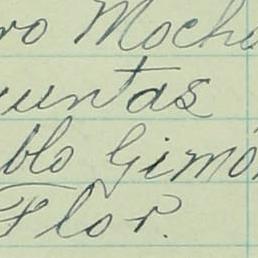 ro Moch
untas
blo Gimó
Flor.